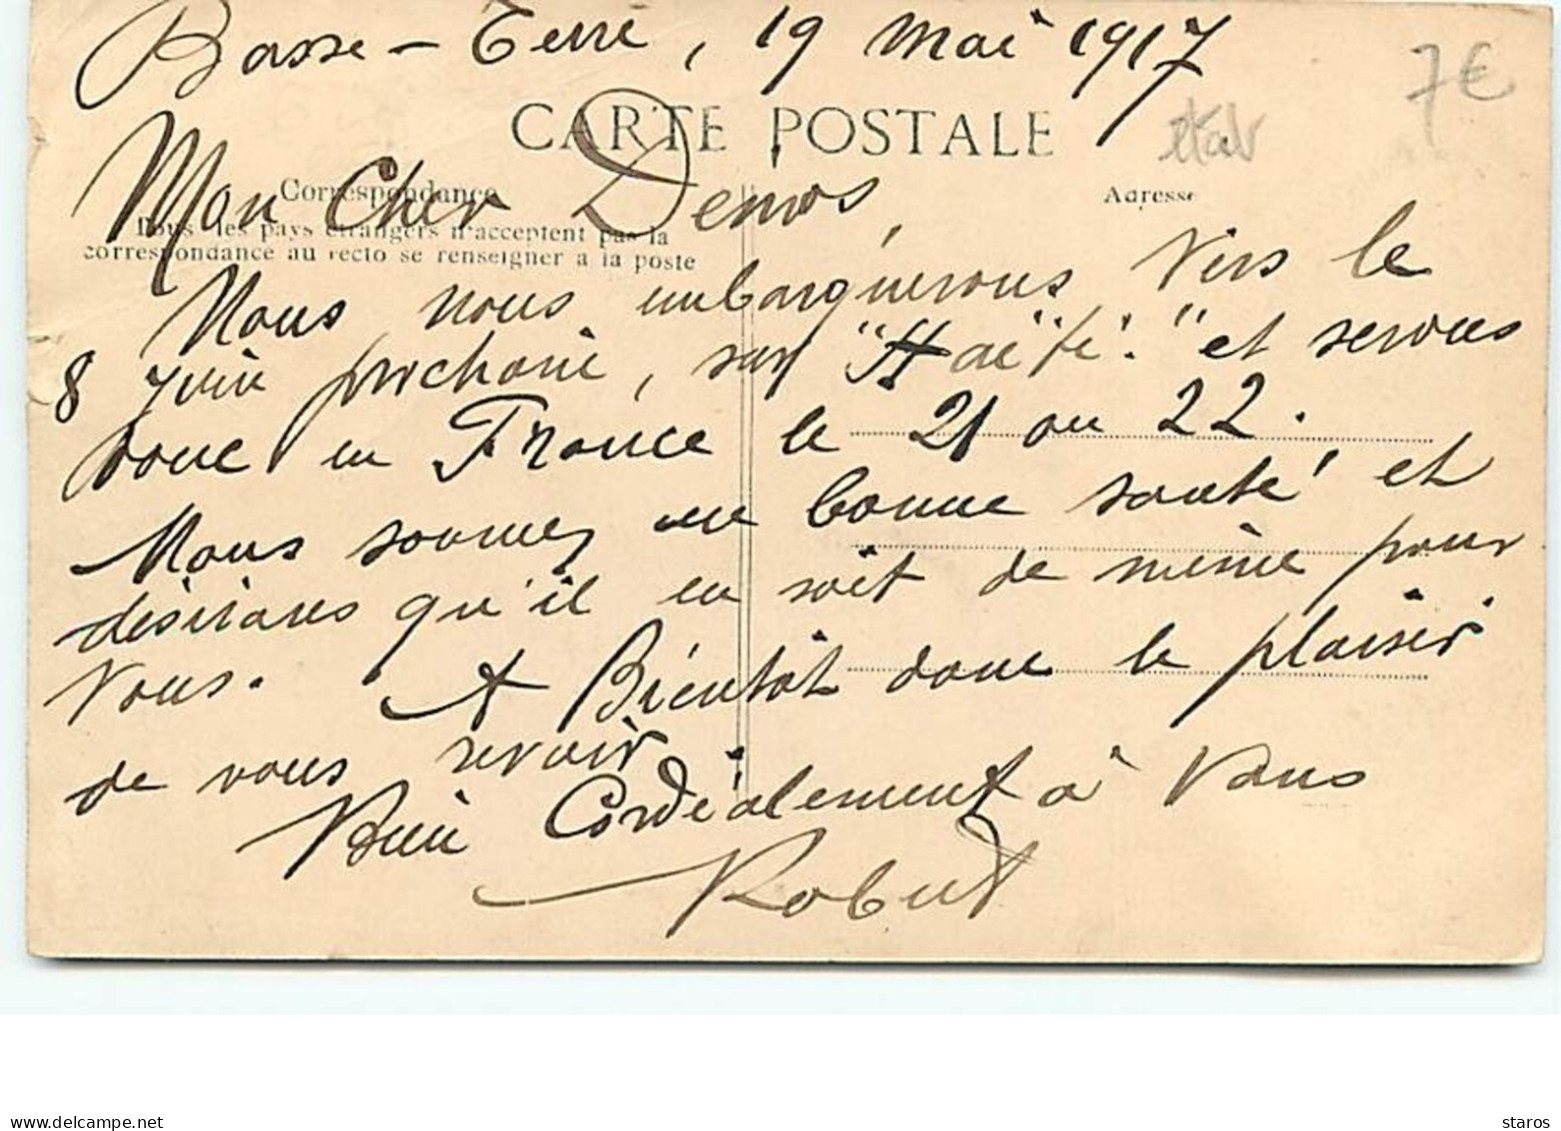 Basse-Terre, 19 mai 1917
7€
CARTE POSTALE
Mon Cher Denos,
Correspondance
Adresse
Tous les pays étrangers n'acceptent pas la
correspondance au recto se renseigner à la poste
Nous nous embarquerons vers le
8 juin prochain, sur "Haïti." et serons
donc en France le 21 ou 22.
Nous sommes en bonne santé et
désirons qu'il en soit de même pour
vous. A Bientôt donc le plaisir
de vous revoir
Bien Cordialement à Vous
Robert
delcampe.net
staros